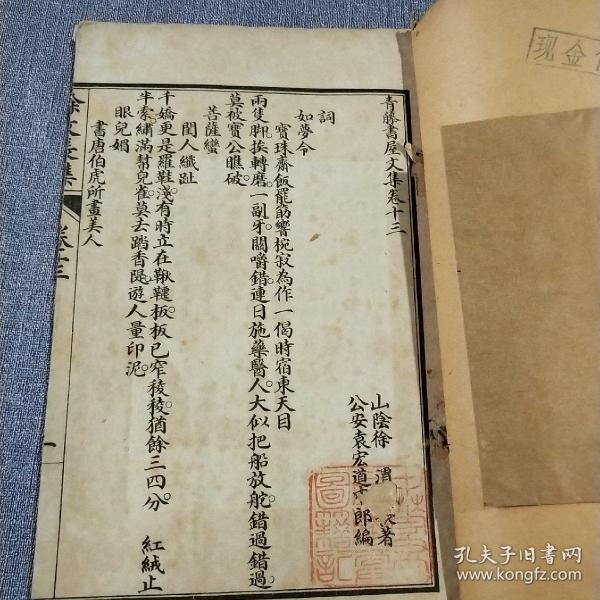 青藤書屋文集卷十三
山陰徐渭 著
公安袁宏道 郎編
詞
如夢令
寳珠齋飯罷筯響椀寂為作一偈時宿東天目
兩隻脚挨轉磨。一副牙關嚼錯。連日施藥醫人。大似把船放舵。錯過錯過。
莫被寳公瞧破。
菩薩蠻
閨人纖趾
千嬌更是羅鞋淺。有時立在鞦韆板。板已窄稜稜。猶餘三四分。 紅絨止
半索。繡滿幫兒雀。莫去踏香隄。遊人量印泥。
眼兒媚
書唐伯虎所畫美人
徐文長集
卷十三
一
圖籍記
现金
孔夫子旧书网
www.kongfz.com